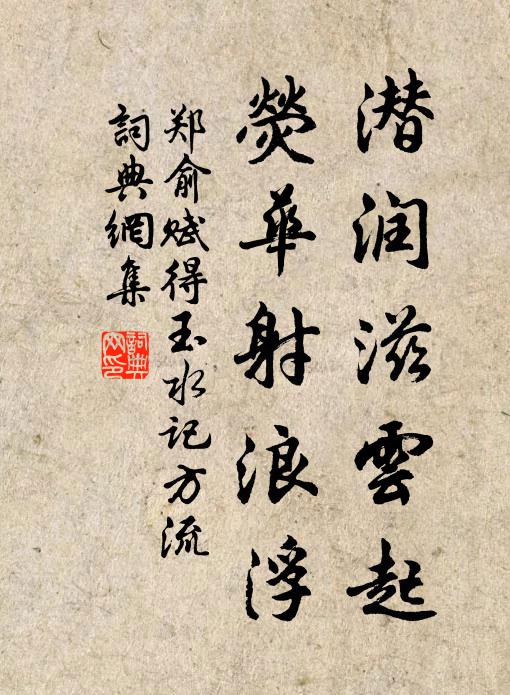 潜润滋雲起
熒華射浪浮
郑俞赋得玉水记方流
詞典網集
詞典
网印